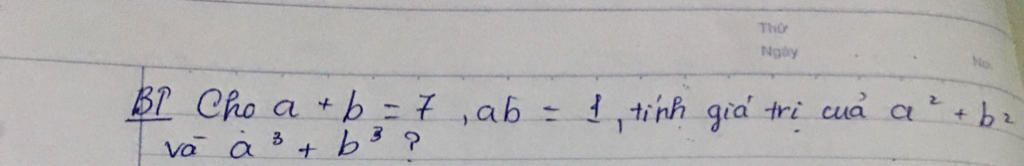 Thứ
Ngày
No.
BT Cho a + b = 7, ab = 1, tính giá trị của a² + b²
và a³ + b³ ?